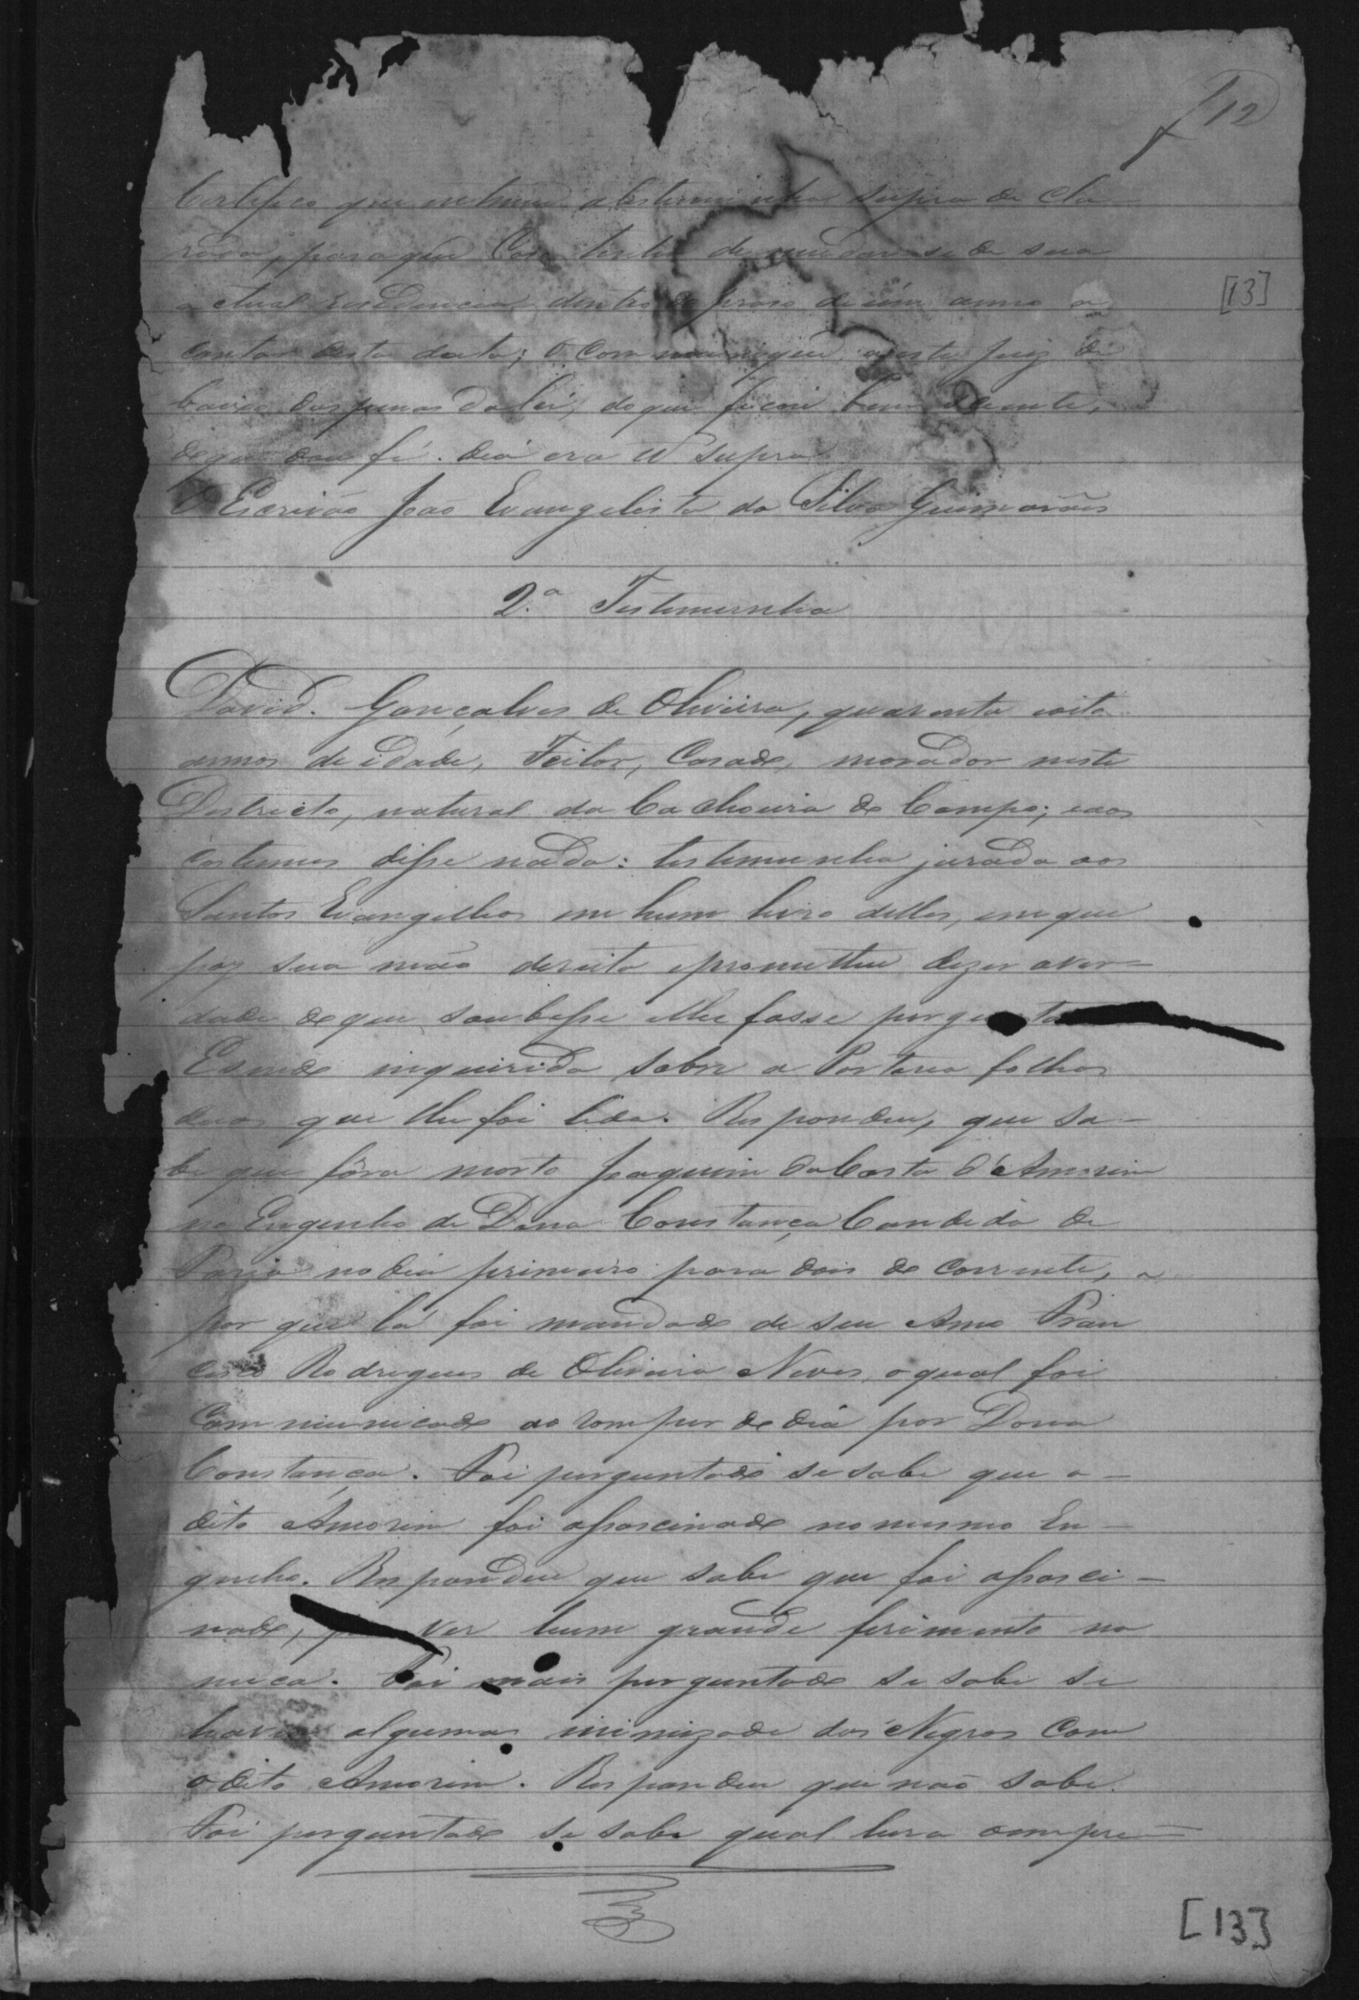 12
Certifico que intimei a testemunha supra de cla
rada, para que Caso tenha de mudar-se de sua
actual residencia, dentro do praso de um anno a
contar desta data; o communique a este Juiz de
baixo das penas da lei, do que ficou bem sciente,
do que dou fé. dia era ut supra
O Escrivão João Evangelista da Silva Guimarães
[13]
2.ª Testemunha
David. Gonçalves de Oliveira, quarenta oito
annos de idade, Feitor, Casado, morador neste
Destricto, natural da Cachoeira do Campo; e aos
Costumes disse nada: testemunha jurada aos
Santos Evangelhos em hum livro delles, em que
poz sua mão dereita e prometteu dizer a ver-
dade do que soubesse e lhe fosse pergunta
E sendo inquirida sobre a Portaria folhas
duas que lhe foi lida. Respondeu, que sa-
be que fôra morto Joaquim da Costa d'Amorim
no Engenho de Dona Constança Candida de
Paria no dia primeiro para dois do corrente,
por que lá foi mandado de seu Amo Fran
cisco Rodrigues de Oliveira Neves, o qual foi
Communicado ao romper do dia por Dona
Constança. Foi perguntado se sabe que o-
dito Amorim foi assacinado no mesmo En-
genho. Respondeu que sabe que foi assaci-
nado, ver hum grande ferimento na
nuca. Foi mais perguntado se sabe se
havia algumas inimizade dos Negros Com
o dito Amorim. Respondeu que não sabe.
Foi perguntado se sabe qual hera o empre-
[13]